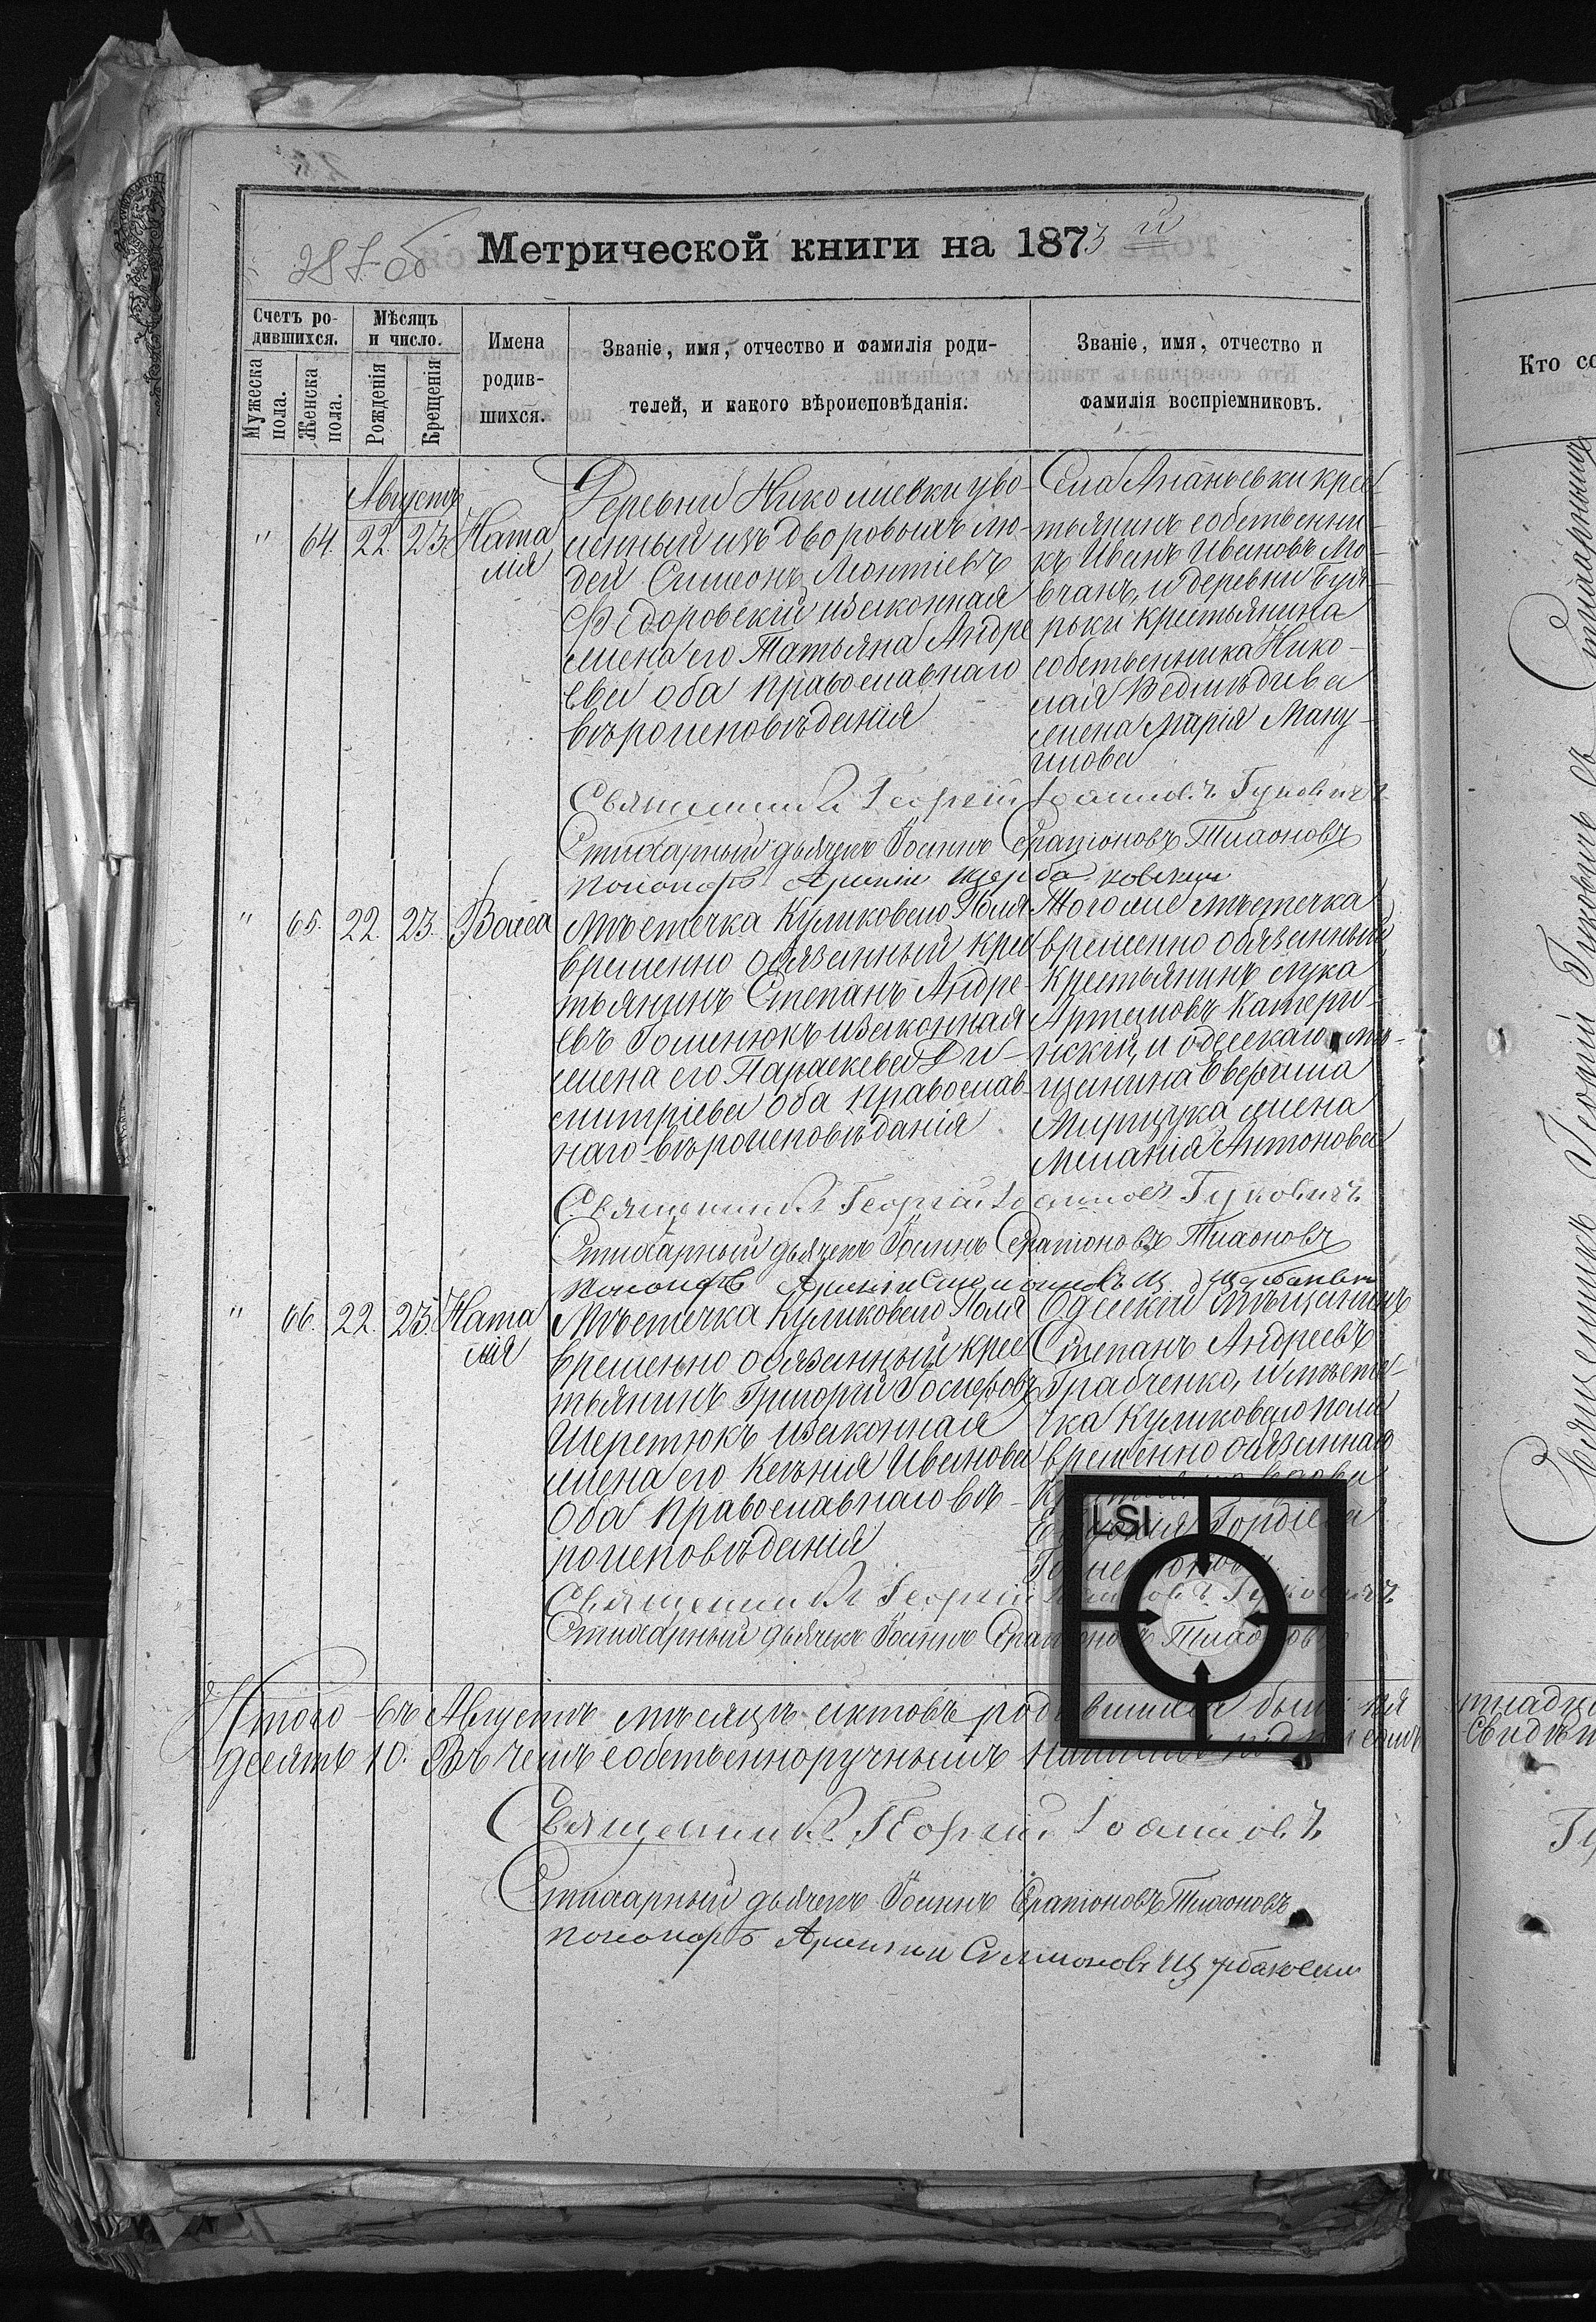 287 об
Метрической книги на 1873 й
Счетъ ро-
дившихся.
Мужеска
пола.
Женска
пола.
Мѣсяцъ
и число.
Рожденія
Крещенія
Имена
родив-
шихся.
Званіе, имя, отчество и фамилія роди-
телей, и какого вѣроисповѣданія.
Званіе, имя, отчество и
фамилія воспріемниковъ.
Кто со
Августъ
" 64. 22. 23. Ната
лія
Деревни Николаевки уво
ленный изъ дворовыхъ лю-
дей Симеонъ Леонтіевъ
Ѳедоровскій изаконная
жена его Татьяна Андре
ева оба православнаго
вѣроисповѣданія
Села Ананьевки крес
тьянинъ собственни-
къ Иванъ Ивановъ Мо-
вчанъ, и деревни
крестьянина
собственника Нико-
лая
жена Марія Ману-
илова
Священникъ Георгій Іоанновъ Гуковичъ
Стихарный дьячекъ Іоаннъ Серапіоновъ Тихоновъ
пономарь Арсеній Щербаковскій
" 65. 22. 23. Васса
Мѣстечка Куликовего Поля
временно обязанный крес
тьянинъ Степанъ Андре-
евъ Гоменюкъ изаконная
жена его Параскева Ди-
митріева оба православ-
наго вѣроисповѣданія
Того же мѣстечка
временно обязанный
крестьянинъ Лука
Артемовъ Катери
нскій, и одесскаго мѣ-
щанина
жена
Меланія Антонова
Священникъ Георгій Іоанновъ Гуковичъ
Стихарный дьячекъ Іоаннъ Серапіоновъ Тихоновъ
пономарь Арсеній Симоновъ Щербаковскій
" 66. 22. 23. Ната
лія
Мѣстечка Куликовего Поля
временно обязанный крес
тьянинъ Григорій Іосифовъ
Шеретюкъ изаконная
жена его Ксенія Иванова
оба православнаго вѣ-
роисповѣданія
Одесскій мѣщанинъ
Степанъ Андреевъ
Грабченко, и мѣсте-
чка Куликовего поля
временно обязанная
вдова
Гордіева
LSI
Священникъ Георгій Іоанновъ Гуковичъ
Стихарный дьячекъ Іоаннъ Серапіоновъ Тихоновъ
Итого въ Августѣ мѣсяцѣ актовъ родившихся
десять 10. Въ чемъ собственноручнымъ
Священникъ Георгій Іоанновъ
Стихарный дьячекъ Іоаннъ Серапіоновъ Тихоновъ
пономарь Арсеній Симоновъ Щербаковскій
Священникъ Георгій Гуковичъ съ Стихарнымъ